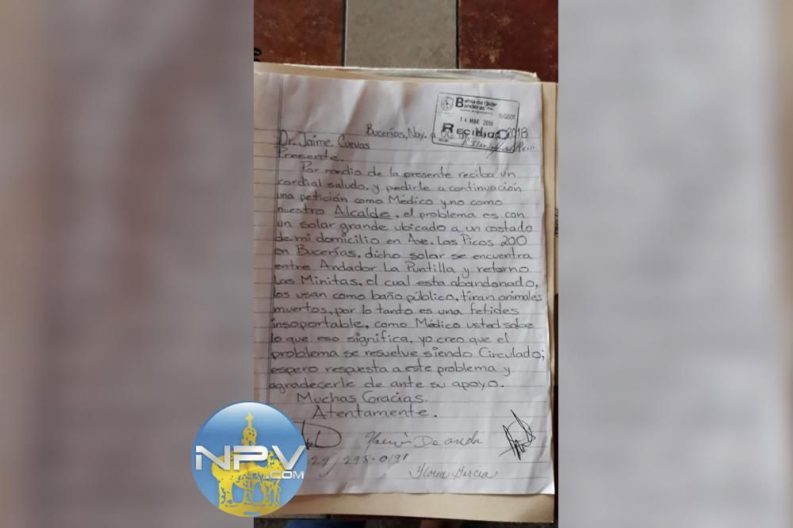 Bahía de
Banderas
14 MAR 2018
RECIBIDO
Bucerías, Nay. a 2018
Dr. Jaime Cuevas
Presente.
Por medio de la presente reciba un
cordial saludo, y pedirle a continuación
una petición como Médico y no como
nuestro Alcalde, el problema es con
un solar grande ubicado a un costado
de mi domicilio en Ave. Los Picos 200
en Bucerías, dicho solar se encuentra
entre Andador La Puntilla y retorno
Las Minitas, el cual esta abandonado,
los usan como baño público, tiran animales
muertos, por lo tanto es una fetides
insoportable, como Médico usted sabe
lo que eso significa, yo creo que el
problema se resuelve siendo Circulado;
espero respuesta a este problema y
agradecerle de ante su apoyo.
Muchas Gracias.
Atentamente.
NPV
.COM